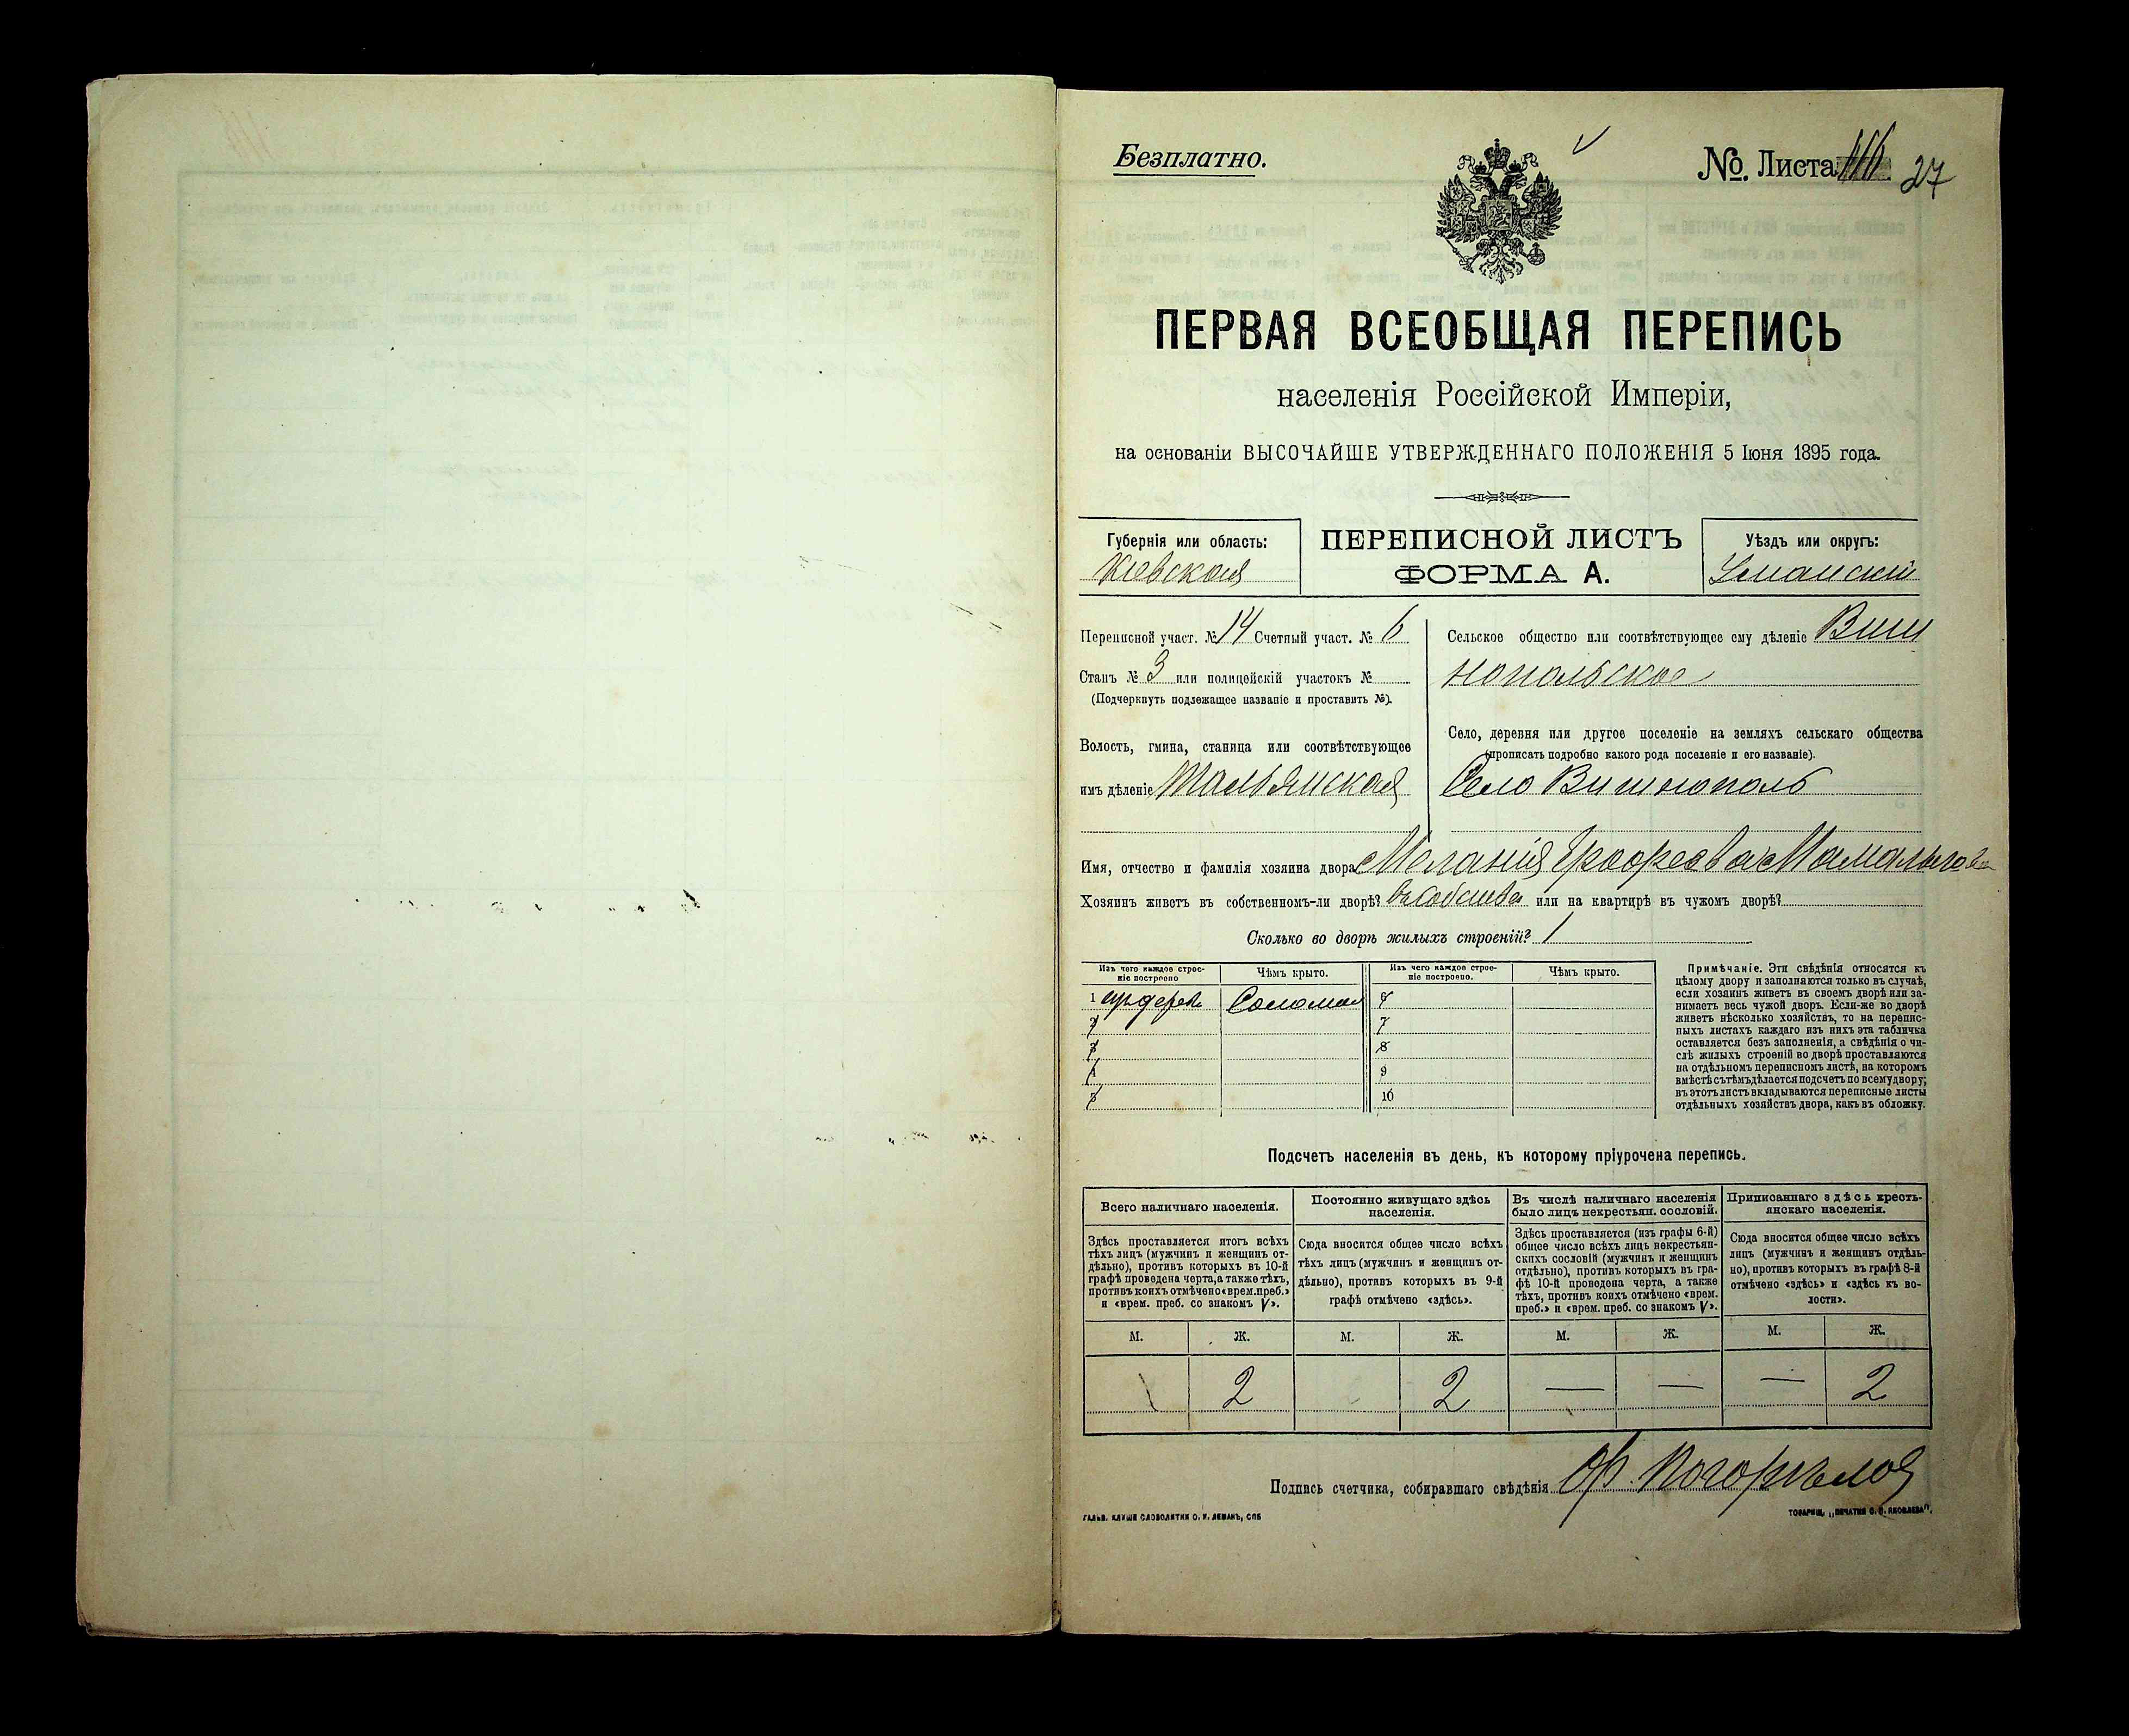 Безплатно.
№. Листа 27
ПЕРВАЯ ВСЕОБЩАЯ ПЕРЕПИСЬ
населенія Россійской Имперіи,
на основаніи ВЫСОЧАЙШЕ УТВЕРЖДЕННАГО ПОЛОЖЕНІЯ 5 Іюня 1895 года.
Губернія или область:
Кіевская
ПЕРЕПИСНОЙ ЛИСТЪ
ФОРМА А.
Уѣздъ или округъ:
Уманскій
Переписной участ. № 14 Счетный участ. № 6
Станъ № 3 или полицейскій участокъ №
(Подчеркнуть подлежащее названіе и проставить №).
Волость, гмина, станица или соотвѣтствующее
имъ дѣленіе Тальянская
Сельское общество или соотвѣтствующее ему дѣленіе Виш
нопольское
Село, деревня или другое поселеніе на земляхъ сельскаго общества
(прописать подробно какого рода поселеніе и его названіе).
Село Вишнополь
Имя, отчество и фамилія хозяина двора Меланія Ерофеева Мамалыгова
Хозяинъ живетъ въ собственномъ-ли дворѣ? въ собствен или на квартирѣ въ чужомъ дворѣ?
Сколько во дворѣ жилыхъ строеній? 1
Изъ чего каждое строе-
ніе построено
Чѣмъ крыто.
Изъ чего каждое строе-
ніе построено.
Чѣмъ крыто.
1 Соломой 6
2 7
3 8
4 9
5 10
Примѣчаніе. Эти свѣдѣнія относятся къ
цѣлому двору и заполняются только въ случаѣ,
если хозяинъ живетъ въ своемъ дворѣ или за-
нимаетъ весь чужой дворъ. Если-же во дворѣ
живетъ нѣсколько хозяйствъ, то на перепис-
ныхъ листахъ каждаго изъ нихъ эта табличка
оставляется безъ заполненія, а свѣдѣнія о чи-
слѣ жилыхъ строеній во дворѣ проставляются
на отдѣльномъ переписномъ листѣ, на которомъ
вмѣстѣ съ тѣмъ дѣлается подсчетъ по всему двору;
въ этотъ листъ вкладываются переписные листы
отдѣльныхъ хозяйствъ двора, какъ въ обложку.
Подсчетъ населенія въ день, къ которому пріурочена перепись.
Всего наличнаго населенія.
Здѣсь проставляется итогъ всѣхъ
тѣхъ лицъ (мужчинъ и женщинъ от-
дѣльно), противъ которыхъ въ 10-й
графѣ проведена черта, а также тѣхъ,
противъ коихъ отмѣчено «врем. преб.»
и «врем. преб. со знакомъ V».
Постоянно живущаго здѣсь
населенія.
Сюда вносится общее число всѣхъ
тѣхъ лицъ (мужчинъ и женщинъ от-
дѣльно), противъ которыхъ въ 9-й
графѣ отмѣчено «здѣсь».
Въ числѣ наличнаго населенія
было лицъ некрестьян. сословій.
Здѣсь проставляется (изъ графы 6-й)
общее число всѣхъ лицъ некрестьян-
скихъ сословій (мужчинъ и женщинъ
отдѣльно), противъ которыхъ въ гра-
фѣ 10-й проведена черта, а также
тѣхъ, противъ коихъ отмѣчено «врем.
преб.» и «врем. преб. со знакомъ V».
Приписаннаго здѣсь кресть-
янскаго населенія.
Сюда вносится общее число всѣхъ
лицъ (мужчинъ и женщинъ отдѣль-
но), противъ которыхъ въ графѣ 8-й
отмѣчено «здѣсь» и «здѣсь къ во-
лости».
М. Ж. М. Ж. М. Ж. М. Ж.
2 2 — — — 2
Подпись счетчика, собиравшаго свѣдѣнія
ГАЛЬВ. КЛИШЕ СЛОВОЛИТНИ О. И. ЛЕМАНЪ, СПБ
ТОВАРИЩ. „ПЕЧАТНЯ С. П. ЯКОВЛЕВА“.